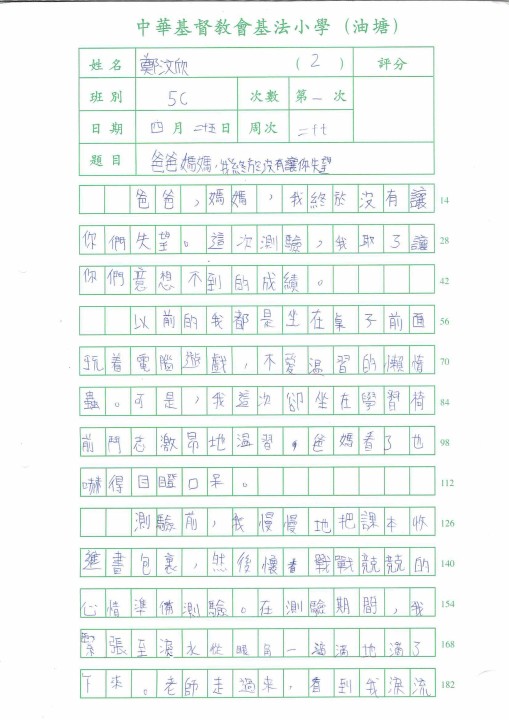 中華基督教會基法小學（油塘）
姓名 鄭汶欣 （2） 評分
班別 5C 次數 第一次
日期 四月二十五日 周次 二十七
題目 爸爸媽媽，我終於沒有讓你失望
爸爸，媽媽，我終於沒有讓 14
你們失望。這次測驗，我取了讓 28
你們意想不到的成績。 42
以前的我都是坐在桌子前面 56
玩着電腦遊戲，不愛温習的懶惰 70
蟲。可是，我這次卻坐在學習椅 84
前鬥志激昂地温習，爸媽看了也 98
嚇得目瞪口呆。 112
測驗前，我慢慢地把課本收 126
進書包裏，然後懷着戰戰競競的 140
心情準備測驗。在測驗期間，我 154
緊張至淚水從眼角一滴滴地滴了 168
下來。老師走過來，看到我淚流 182